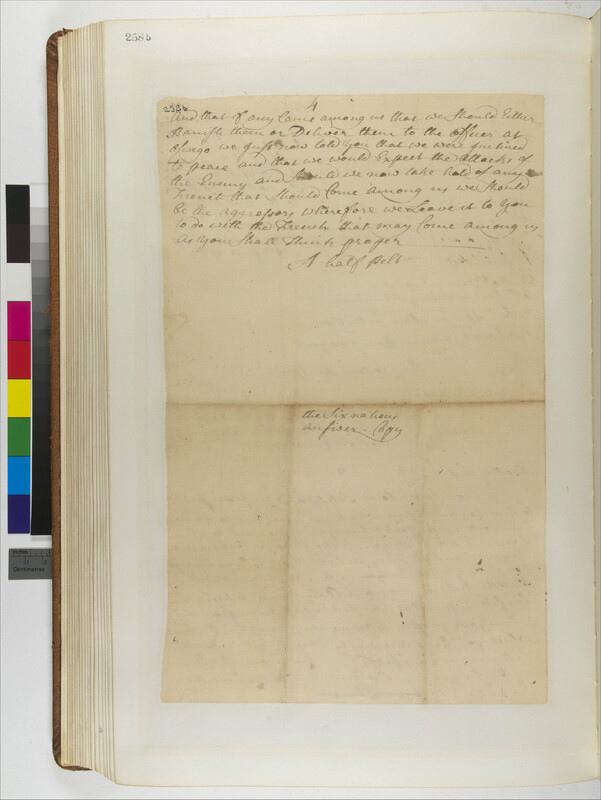 258b
258b
4
And that if any Came among us that we Should Either
Banish them or Deliver them to the officer at
oswego we Just now told you that we were Inclined
to peace and that we would Expect the attacks of
the Enemy and Should we now take hold of any
French that Should Come among us we Should
be the agressors wherefore we Leave it to you
to do with the French that may Come among us
as you shall think proper
A half Belt
the Six nations
answer - Copy
Inches
Centimetres